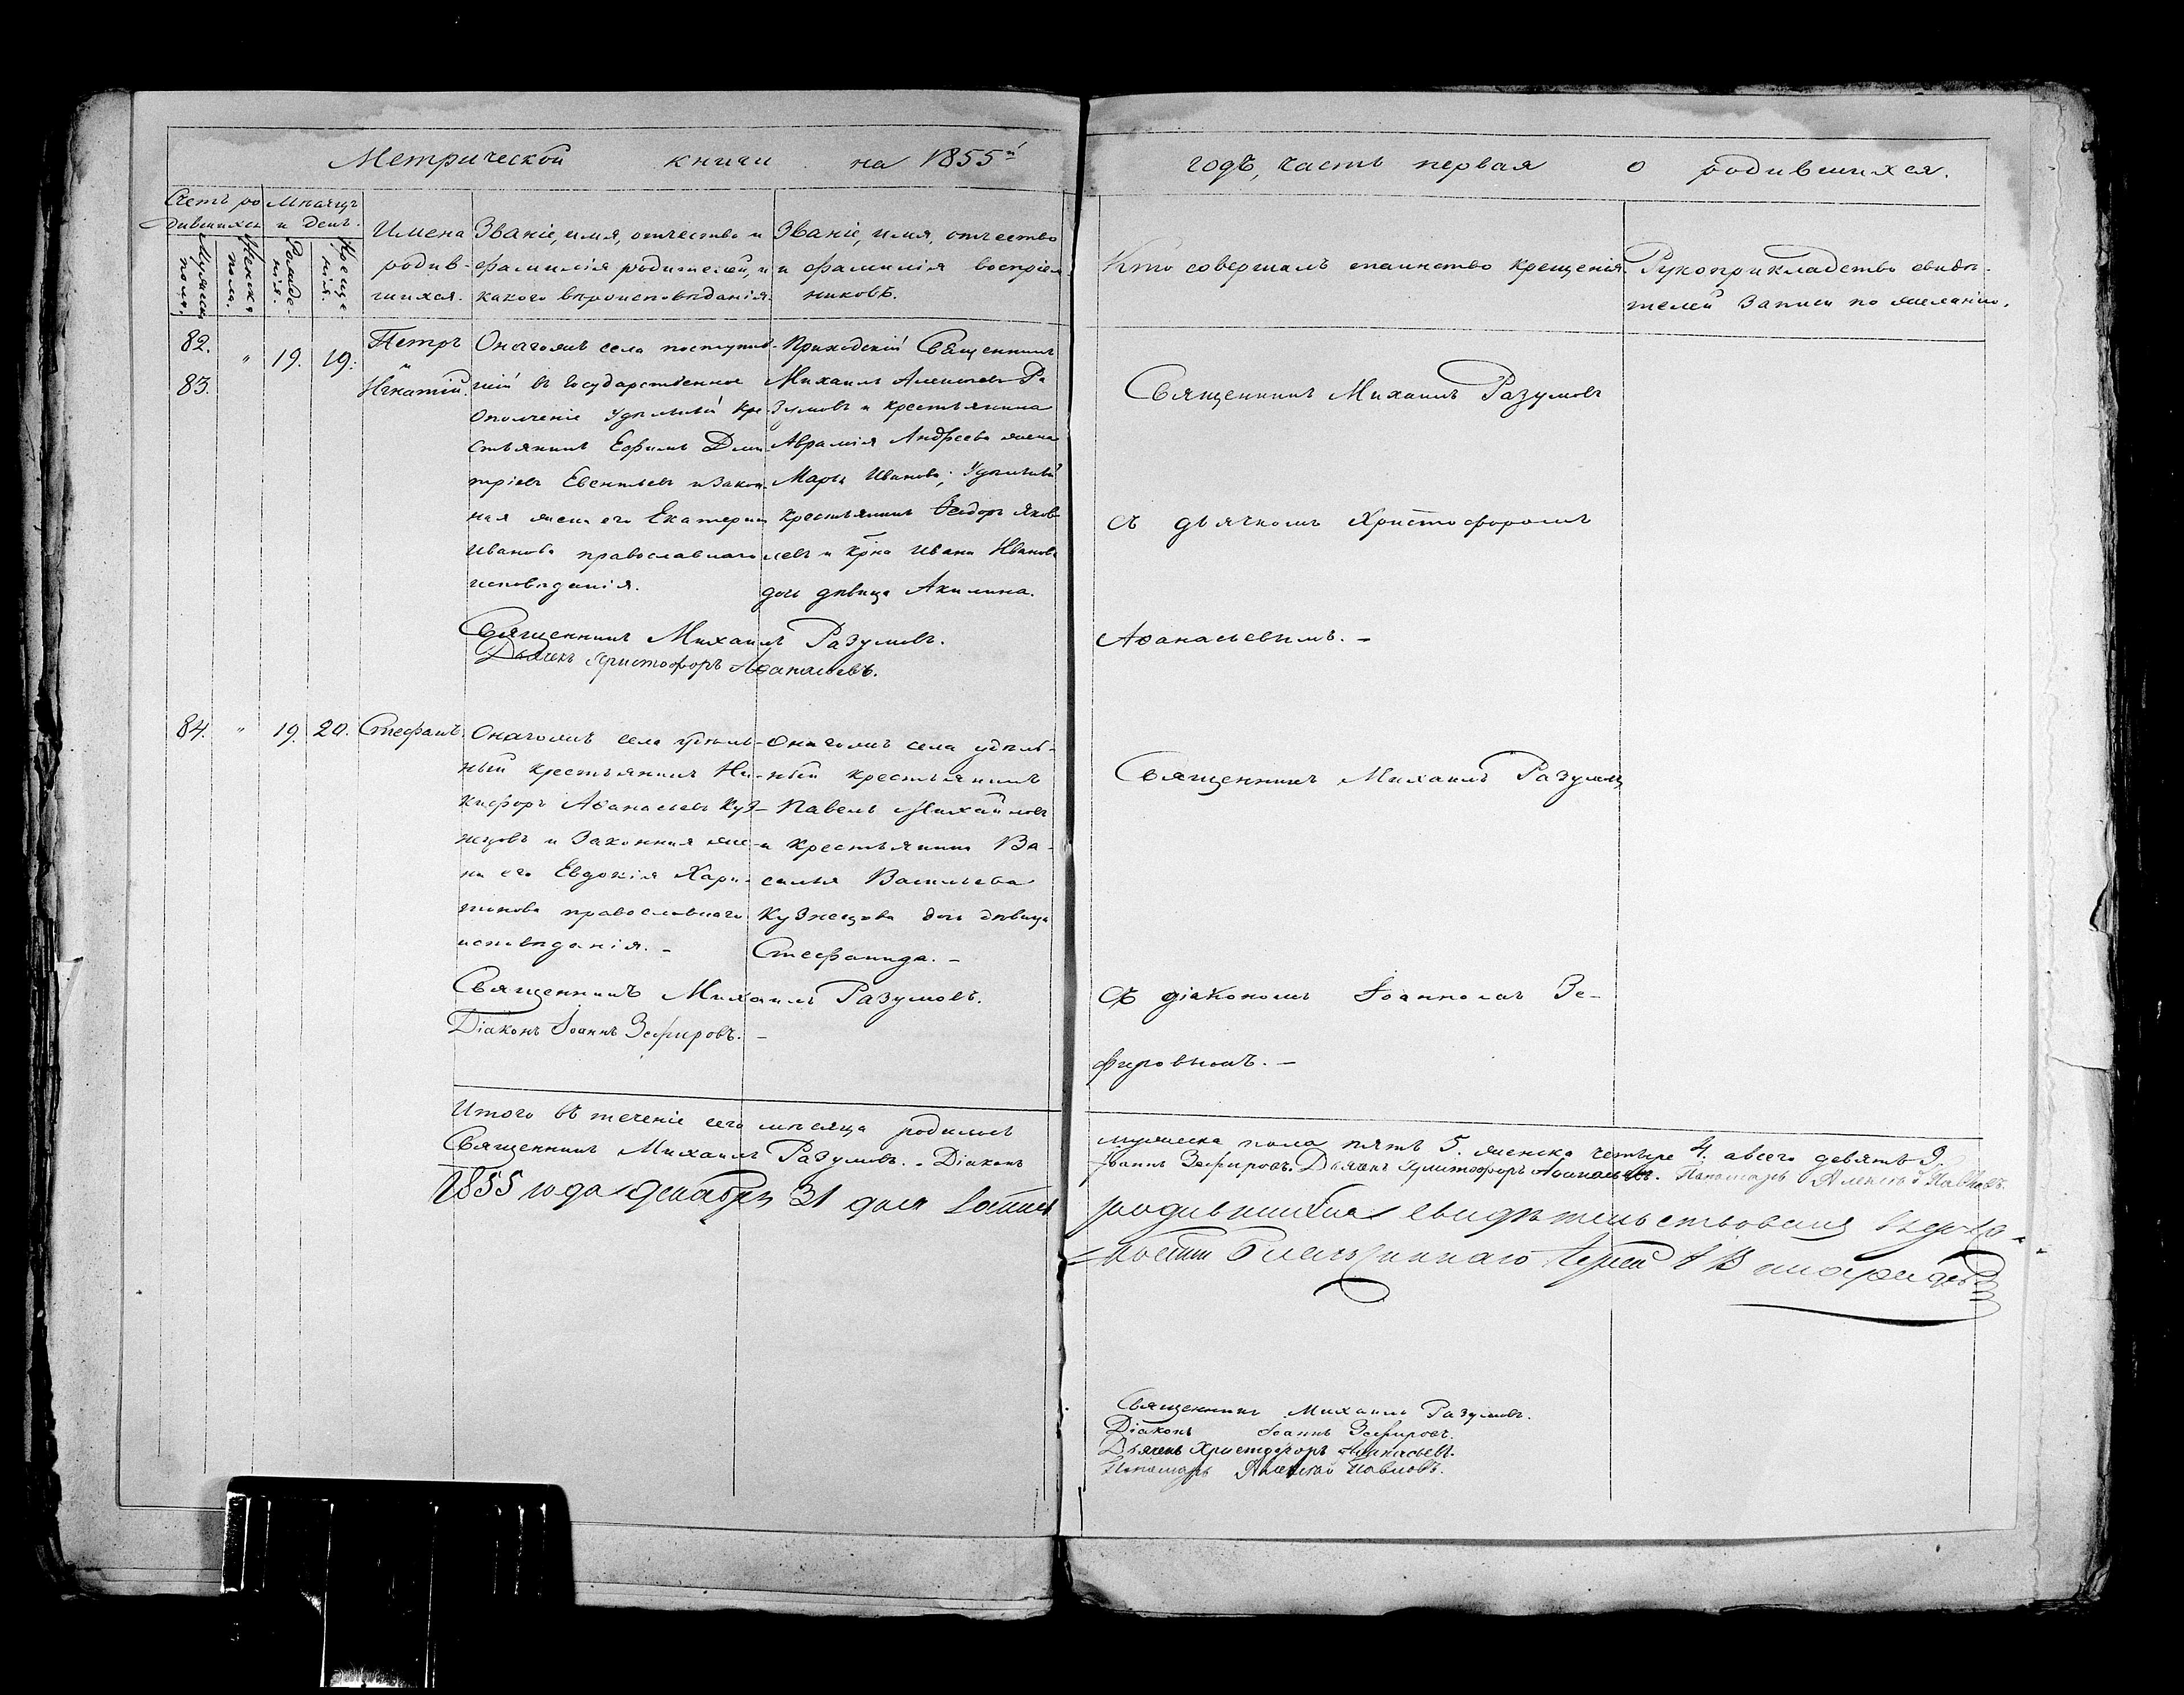 Метрической книги на 1855й
годъ, часть первая о родившихся.
Счетъ ро
дившихся
Мѣсяцъ
и день.
Мужеска
пола.
Женска
пола.
Рожде-
нія.
Креще
нія.
Имена
родив-
шихся.
Званіе, имя, отчество и
фамилія родителей, и
какого вѣроисповѣданія.
Званіе, имя, отчество
и фамилія воспріем
никовъ.
Кто совершалъ таинство крещенія.
Рукоприкладство свидѣ-
телей записи по желанію.
82.
83.
"
19.
19.
Петръ
и
Игнатій.
Онагожъ села поступив-
шій въ Государственное
ополченіе удѣльный кре-
стьянинъ Ефимъ Дми-
тріевъ Евсигнѣевъ и закон-
ная жена его Екатерина
Иванова православнаго
исповѣданія.
Приходскій Священникъ
Михаилъ Алексѣевъ Ра
зумовъ и крестьянина
Аврамія Андреева жена
Марѳа Иванова; Удѣльный
крестьянинъ Ѳеодоръ Яков-
левъ и крна Ивана Иванова
дочь дѣвица Акилина.
Священникъ Михаилъ Разумовъ.
Дьячекъ Христофоръ Аѳанасьевъ.
Священникъ Михаилъ Разумовъ
съ дьячкомъ Христофоромъ
Аѳанасьевымъ. -
84.
"
19.
20.
Стефанъ.
Онагожъ села удѣль-
ный крестьянинъ Ни-
кифоръ Аѳанасьевъ Куз-
нецовъ и законная же-
на его Евдокія Хари-
тонова православнаго
исповѣданія. -
Онагожъ села удѣль-
ный крестьянинъ
Павелъ Михайловъ
и крестьянина Ва-
силья Васильева
Кузнецова дочь дѣвица
Стефанида. -
Священникъ Михаилъ Разумовъ.
Діаконъ Іоаннъ Зефировъ. -
Священникъ Михаилъ Разумовъ
Съ діакономъ Іоанномъ Зе-
фировымъ. -
Итого въ теченіе сего мѣсяца родилось
мужеска пола пять 5. женска четыре 4. а всего девять 9.
Священникъ Михаилъ Разумовъ. Діаконъ
Іоаннъ Зефировъ. Дьячекъ Христофоръ Аѳанасьевъ. Пономарь Алексѣй Павловъ.
1855 года декабря 31 дня
родившихся свидѣтельствовалъ
Іерей
Священникъ Михаилъ Разумовъ.
Діаконъ Іоаннъ Зефировъ.
Дьячекъ Христофоръ Аѳанасьевъ.
Пономарь Алексѣй Павловъ.